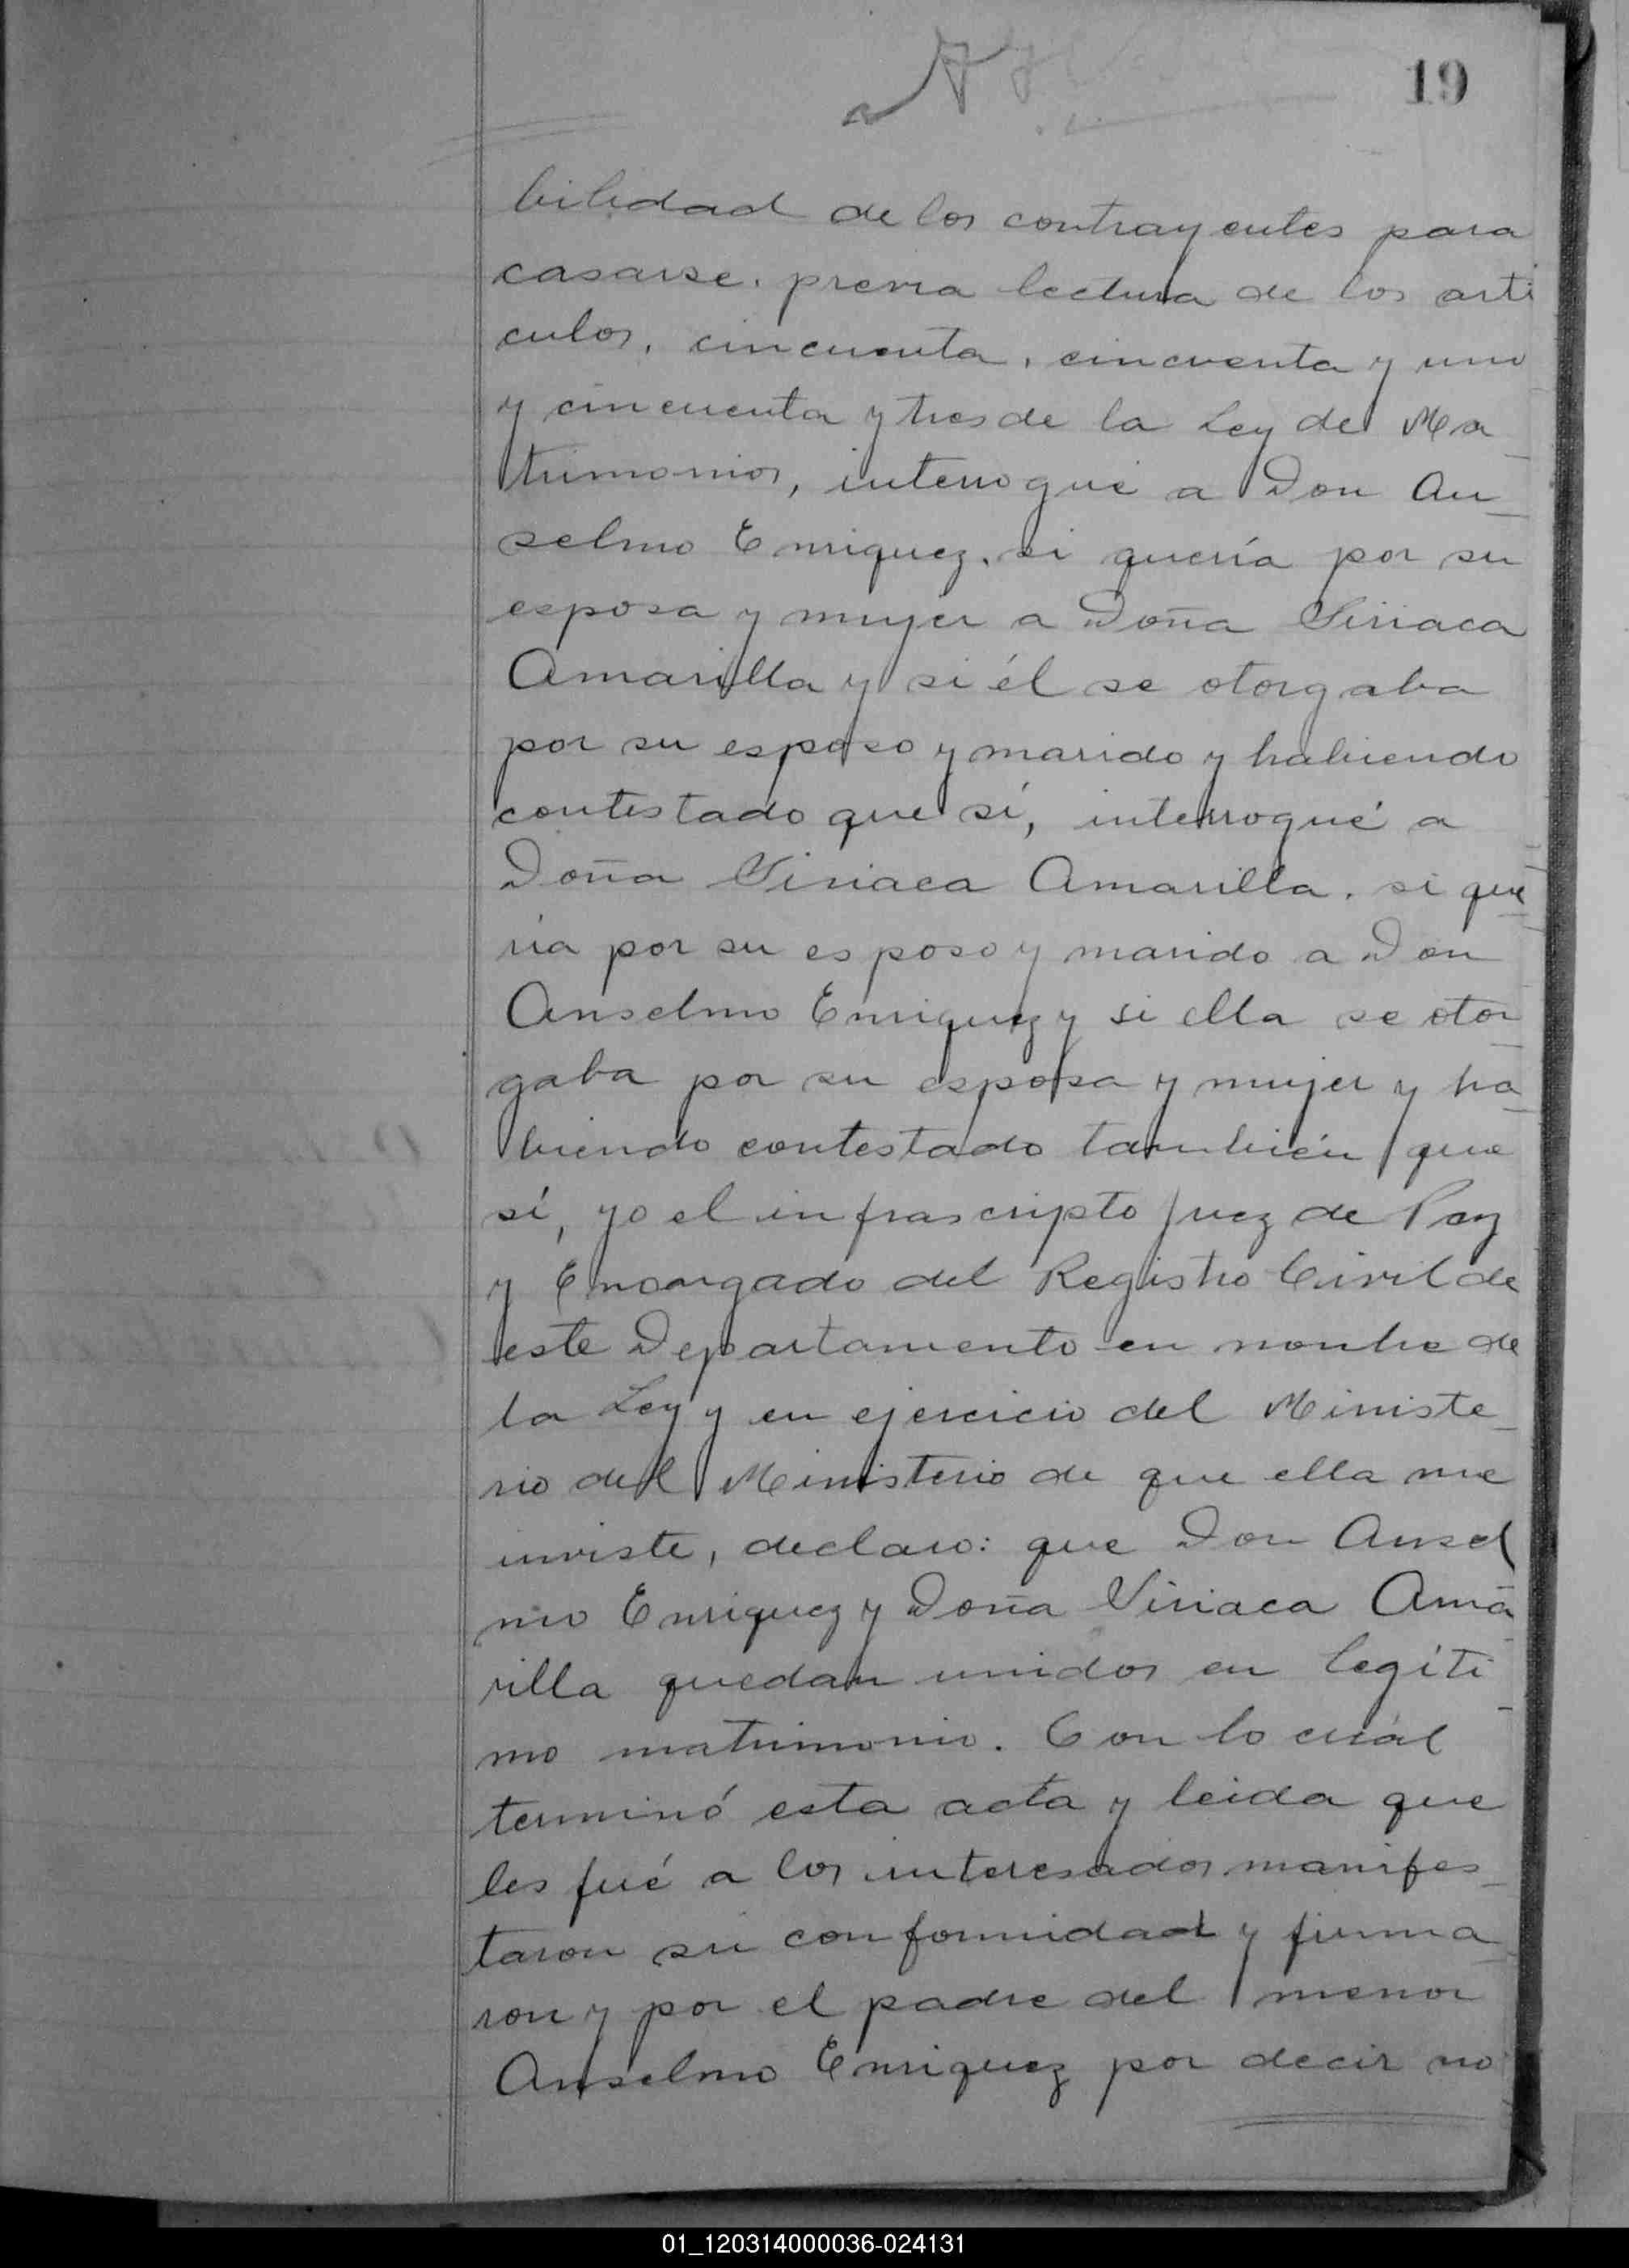 19
bilidad de los contrayentes para
casarse, previa lectura de los arti
culos, cincuenta, cincuenta y uno
y cincuenta y tres de la Ley de Ma_
trimonios, interrogué a Don An_
selmo Enriquez, si quería por su
esposa y mujer a Doña Siriaca
Amarilla y si él se otorgaba
por su esposo y marido y habiendo
contestado que sí, interrogué a
Doña Siriaca Amarilla, si que_
ria por su esposo y marido a Don
Anselmo Enriquez y si ella se otor_
gaba por su esposa y mujer y ha_
biendo contestado también que
sí, yo el infrascripto Juez de Paz
y Encargado del Registro Civil de
este Departamento en nombre de
la Ley y en ejercicio del Ministe_
rio del Ministerio de que ella me
inviste, declaro: que Don Ansel
mo Enriquez y Doña Siriaca Ama
rilla quedan unidos en legíti_
mo matrimonio. Con lo cuál
terminó esta acta y leida que
les fué a los interesados manifes_
taron su conformidad y firma_
ron y por el padre del menor
Anselmo Enriquez por decir no
01_120314000036-024131